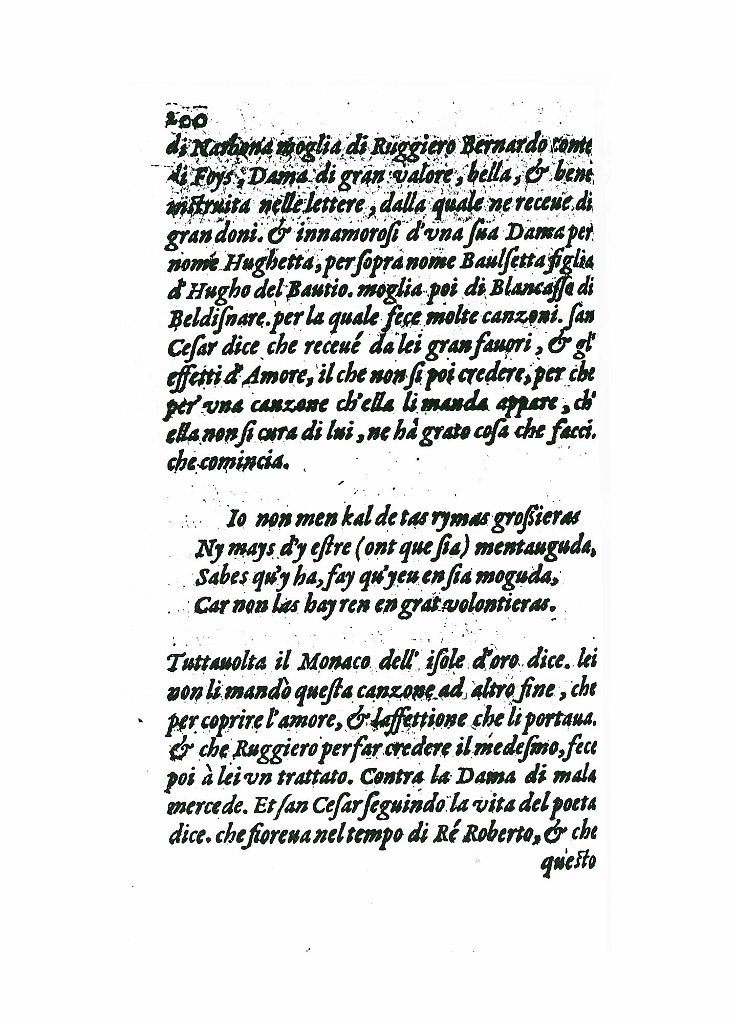 200
di Narbona moglia di Ruggiero Bernardo conte
di Foys, Dama di gran valore, bella, & bene
instruita nelle lettere, dalla quale ne receue di
gran doni. & innamorosi d'vna sua Dama per
nome Hughetta, per sopra nome Baulsetta figlia
d'Hugho del Bautio. moglia poi di Blancasso di
Beldisnare. per la quale fece molte canzoni. san
Cesar dice che receué da lei gran fauori, & gl'
effetti d'Amore, il che non si poi credere, per che
per vna canzone ch'ella li manda appare, ch'
ella non si cura di lui, ne hà grato cosa che facci.
che comincia.
Io non men kal de tas rymas grossieras
Ny mays d'y estre (ont que sia) mentauguda,
Sabes qu'y ha, fay qu'yeu en sia moguda,
Car non las hay ren en grat volontieras.
Tuttauolta il Monaco dell' isole d'oro dice. lei
non li mandò questa canzone ad altro fine, che
per coprire l'amore, & laffettione che li portaua.
& che Ruggiero per far credere il medesmo, fece
poi à lei vn trattato. Contra la Dama di mala
mercede. Et san Cesar seguindo la vita del poeta
dice. che fioreua nel tempo di Ré Roberto, & che
questo